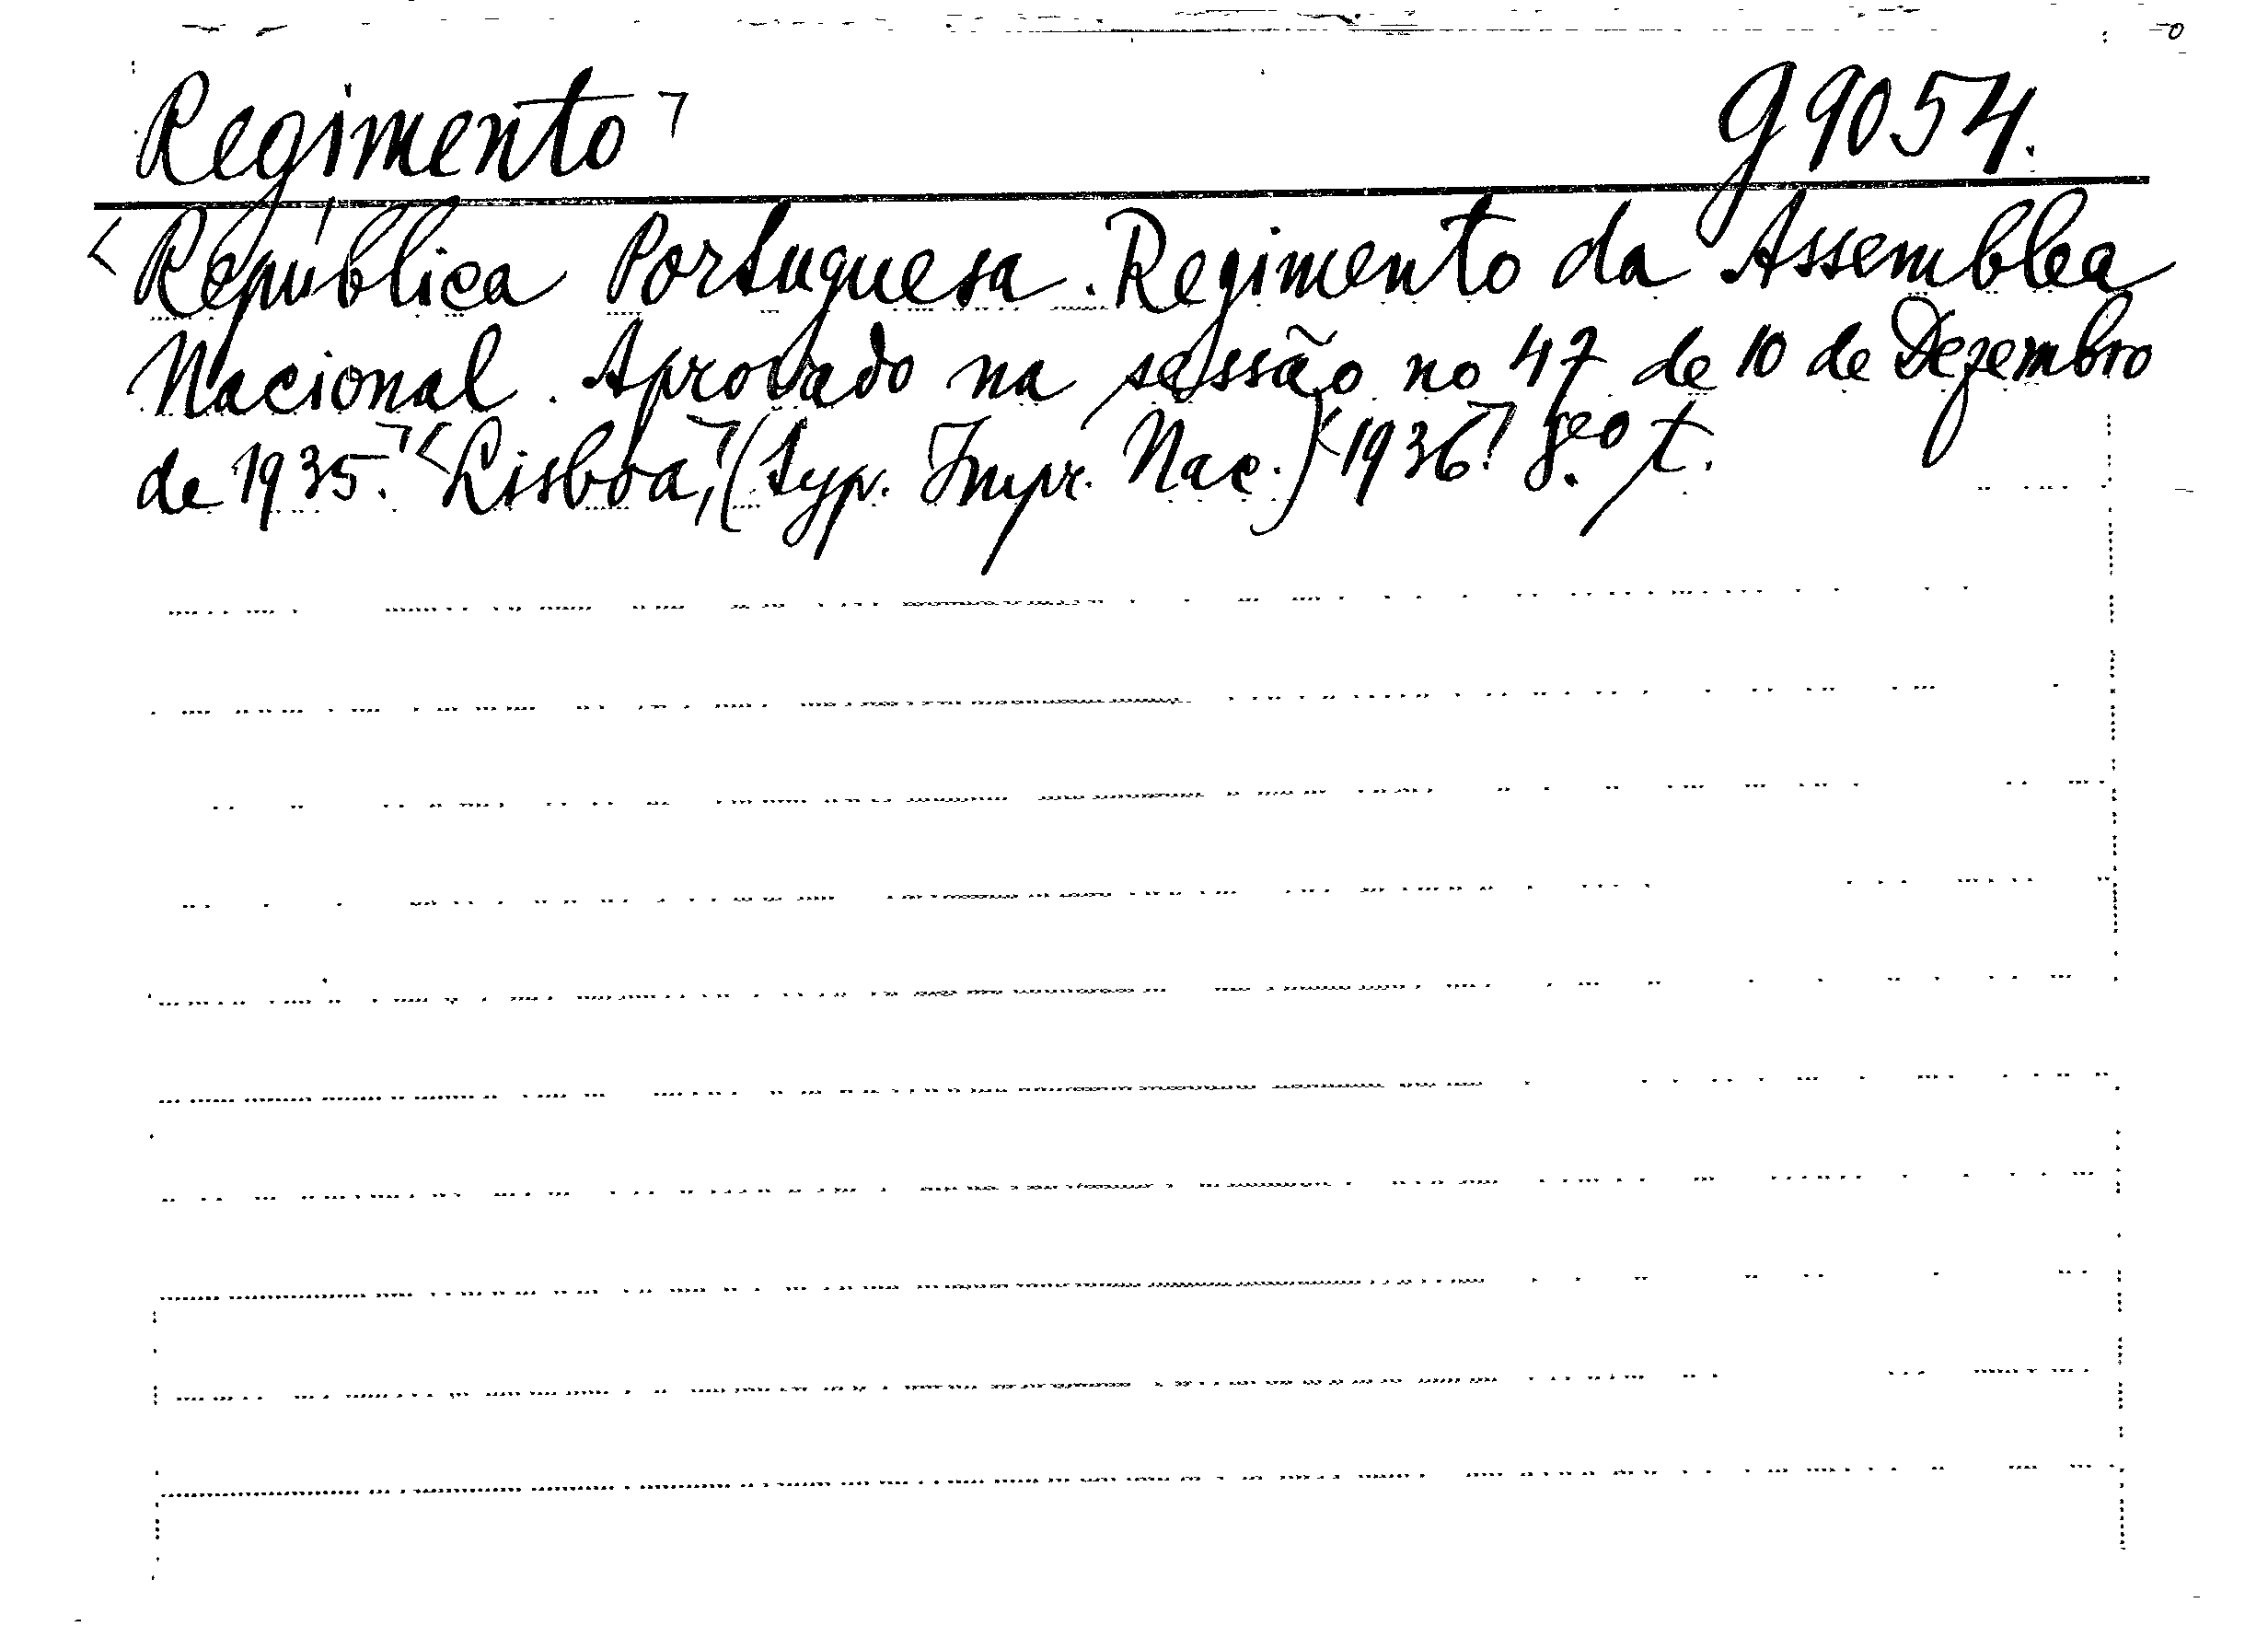 Regimento ⌝ g 9054.
< República Portuguesa. Regimento da Assemblea
Nacional. Aprovado na sessão no 47 de 10 de Dezembro
de 1935.⌝ < Lisboa,⌝ (Typ. Impr. Nac.) < 1936.⌝ 8.º t.